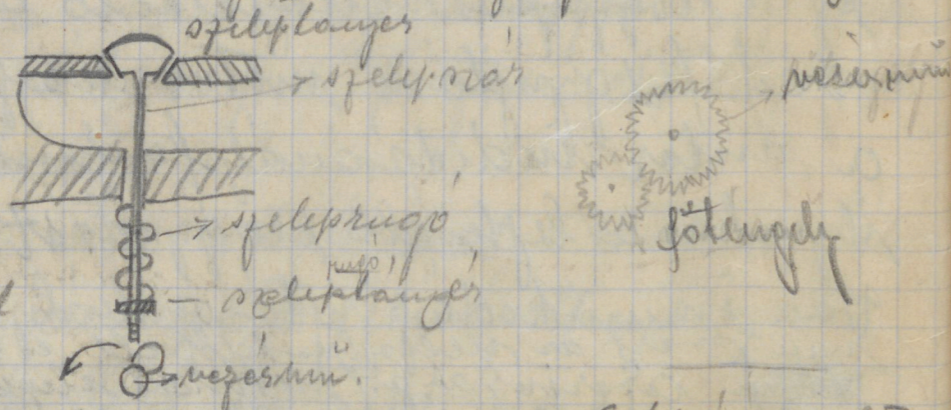 szeleptányér
szelepszár
vezérmű
szeleprugó
főtengely
rugó
szeleptányér
vezérmű.